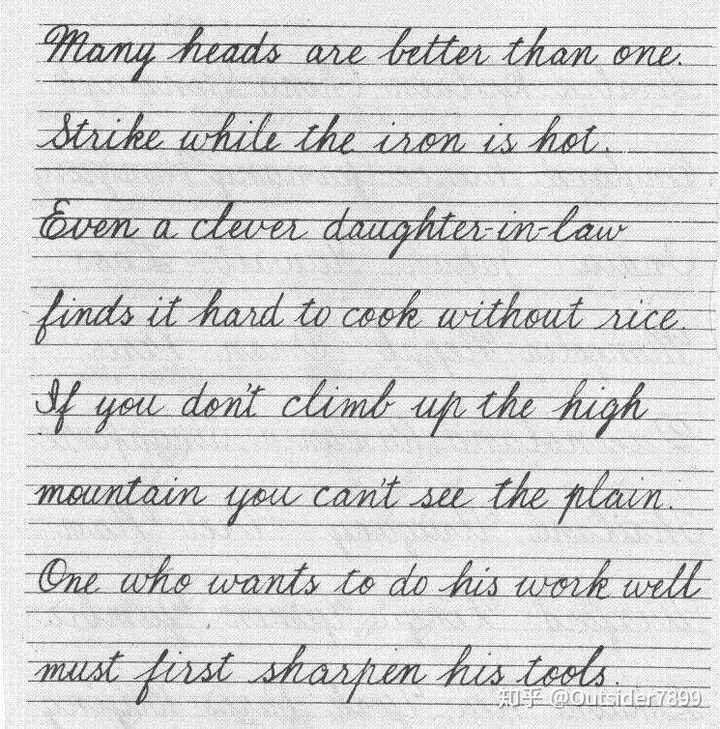 Many heads are better than one.
Strike while the iron is hot.
Even a clever daughter-in-law
finds it hard to cook without rice.
If you don't climb up the high
mountain you can't see the plain.
One who wants to do his work well
must first sharpen his tools.
知乎 @Outsider7899